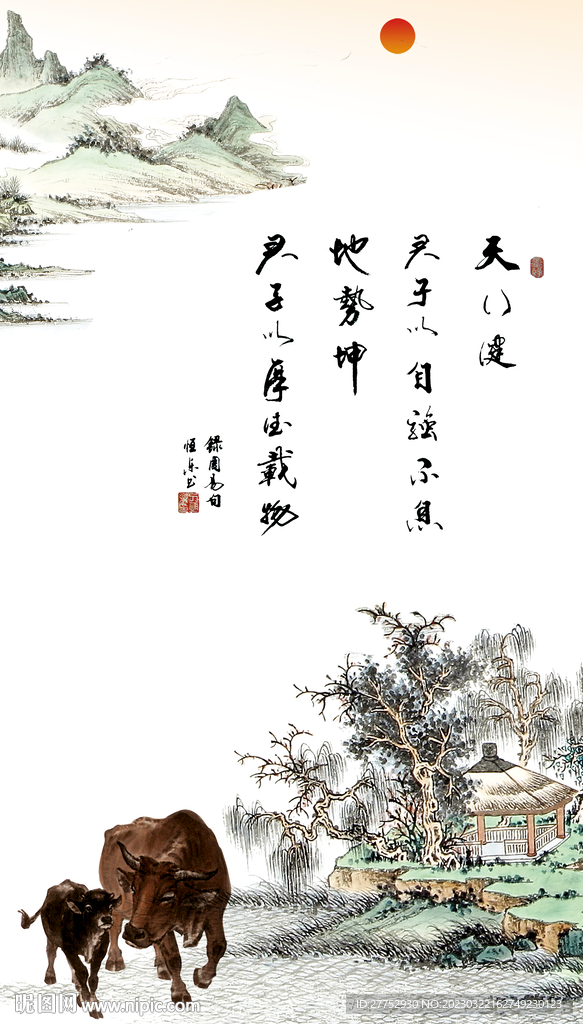 天行健
君子以自強不息
地勢坤
君子以厚德載物
錄周易句
恒德书
昵图网 www.nipic.com
ID:27752930 NO:20230322162749230123